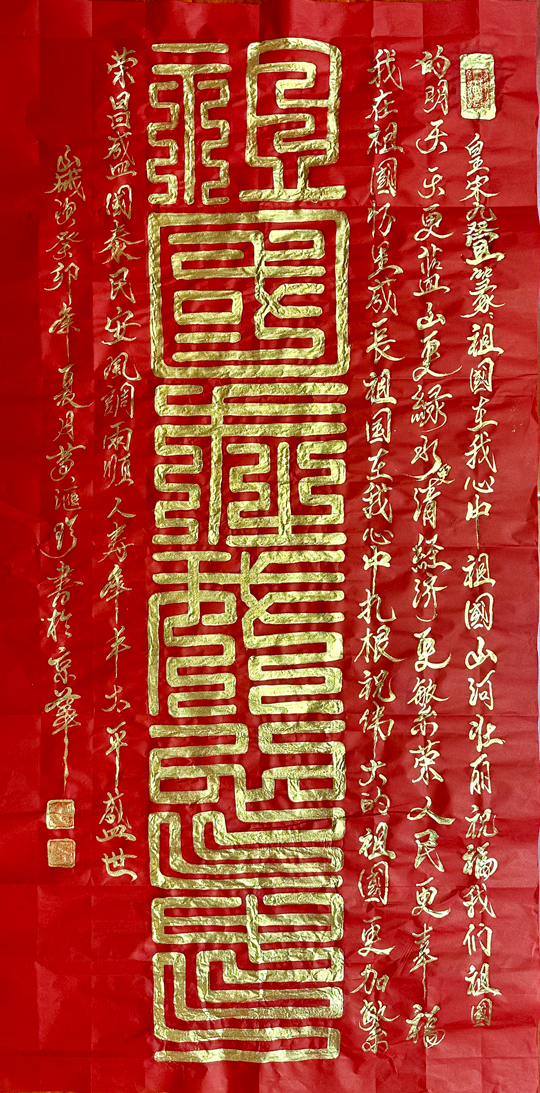 皇宋九叠篆 祖國在我心中 祖國山河壮丽 祝福我们祖国
的明天 天更蓝山更緑水更清 経济更繁荣 人民更幸福
我在祖國怀里成長 祖国在我心中扎根 祝伟大的祖國更加繁
祖國在我心中
荣昌盛 国泰民安 風調雨顺 人寿年丰 太平盛世
歲海癸卯年夏月 書於京華